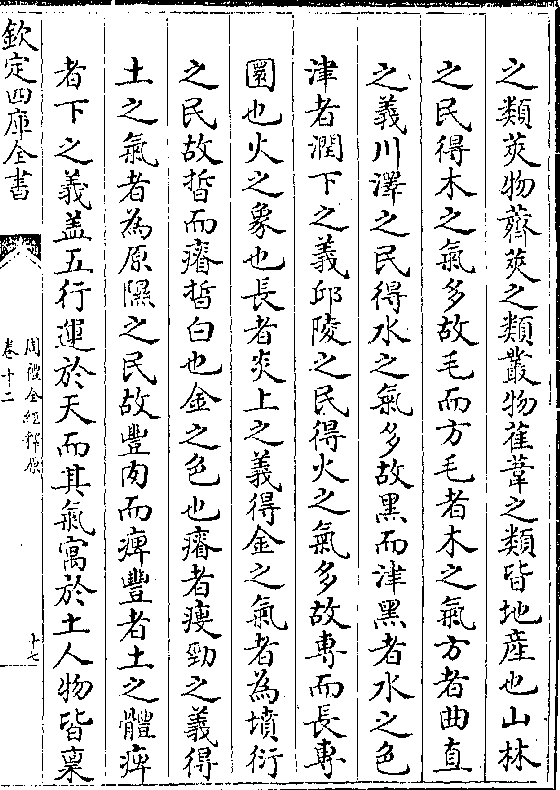 之類莢物薺莢之類叢物萑葦之類皆地産也山林
之民得木之氣多故毛而方毛者木之氣方者曲直
之義川澤之民得水之氣多故黒而津黒者水之色
津者潤下之義邱陵之民得火之氣多故專而長專
圜也火之象也長者炎上之義得金之氣者為墳衍
之民故晳而瘠晳白也金之色也瘠者瘦勁之義得
土之氣者為原隰之民故豐肉而痺豐者土之體痺
者下之義盖五行運於天而其氣寓於土人物皆稟
欽定四庫全書
周禮全經釋原
卷十二
十七